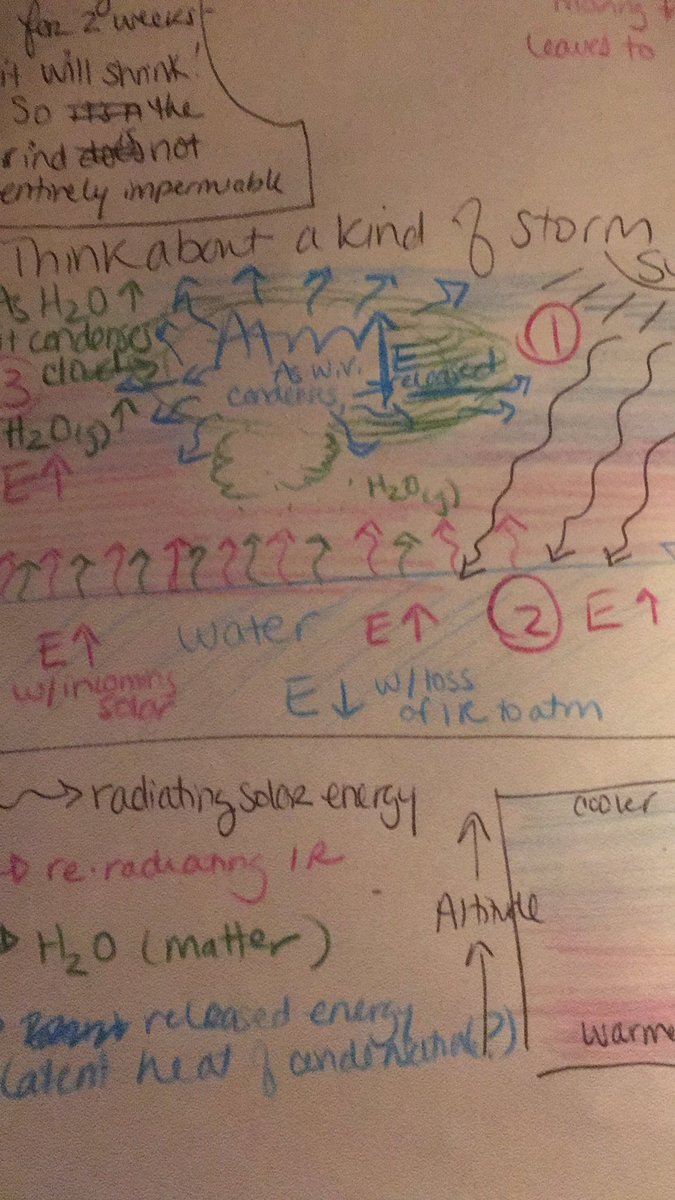 for 2 weeks
it will shrink!
So the
rind does not
entirely impermuable
leaves to
Think about a kind of storm
As H2O ↑
it condenses
clouds
3
H2O(g) ↑
E ↑
Atm
As W.V.
condenses,
E
released
1
H2O(g)
E ↑
w/incoming
solar
water
E ↑
2
E ↑
E ↓ w/loss
of IR to atm
radiating solar energy
re-radiating IR
H2O (matter)
released energy
(latent heat of condensation(?)
Altitude
cooler
warme